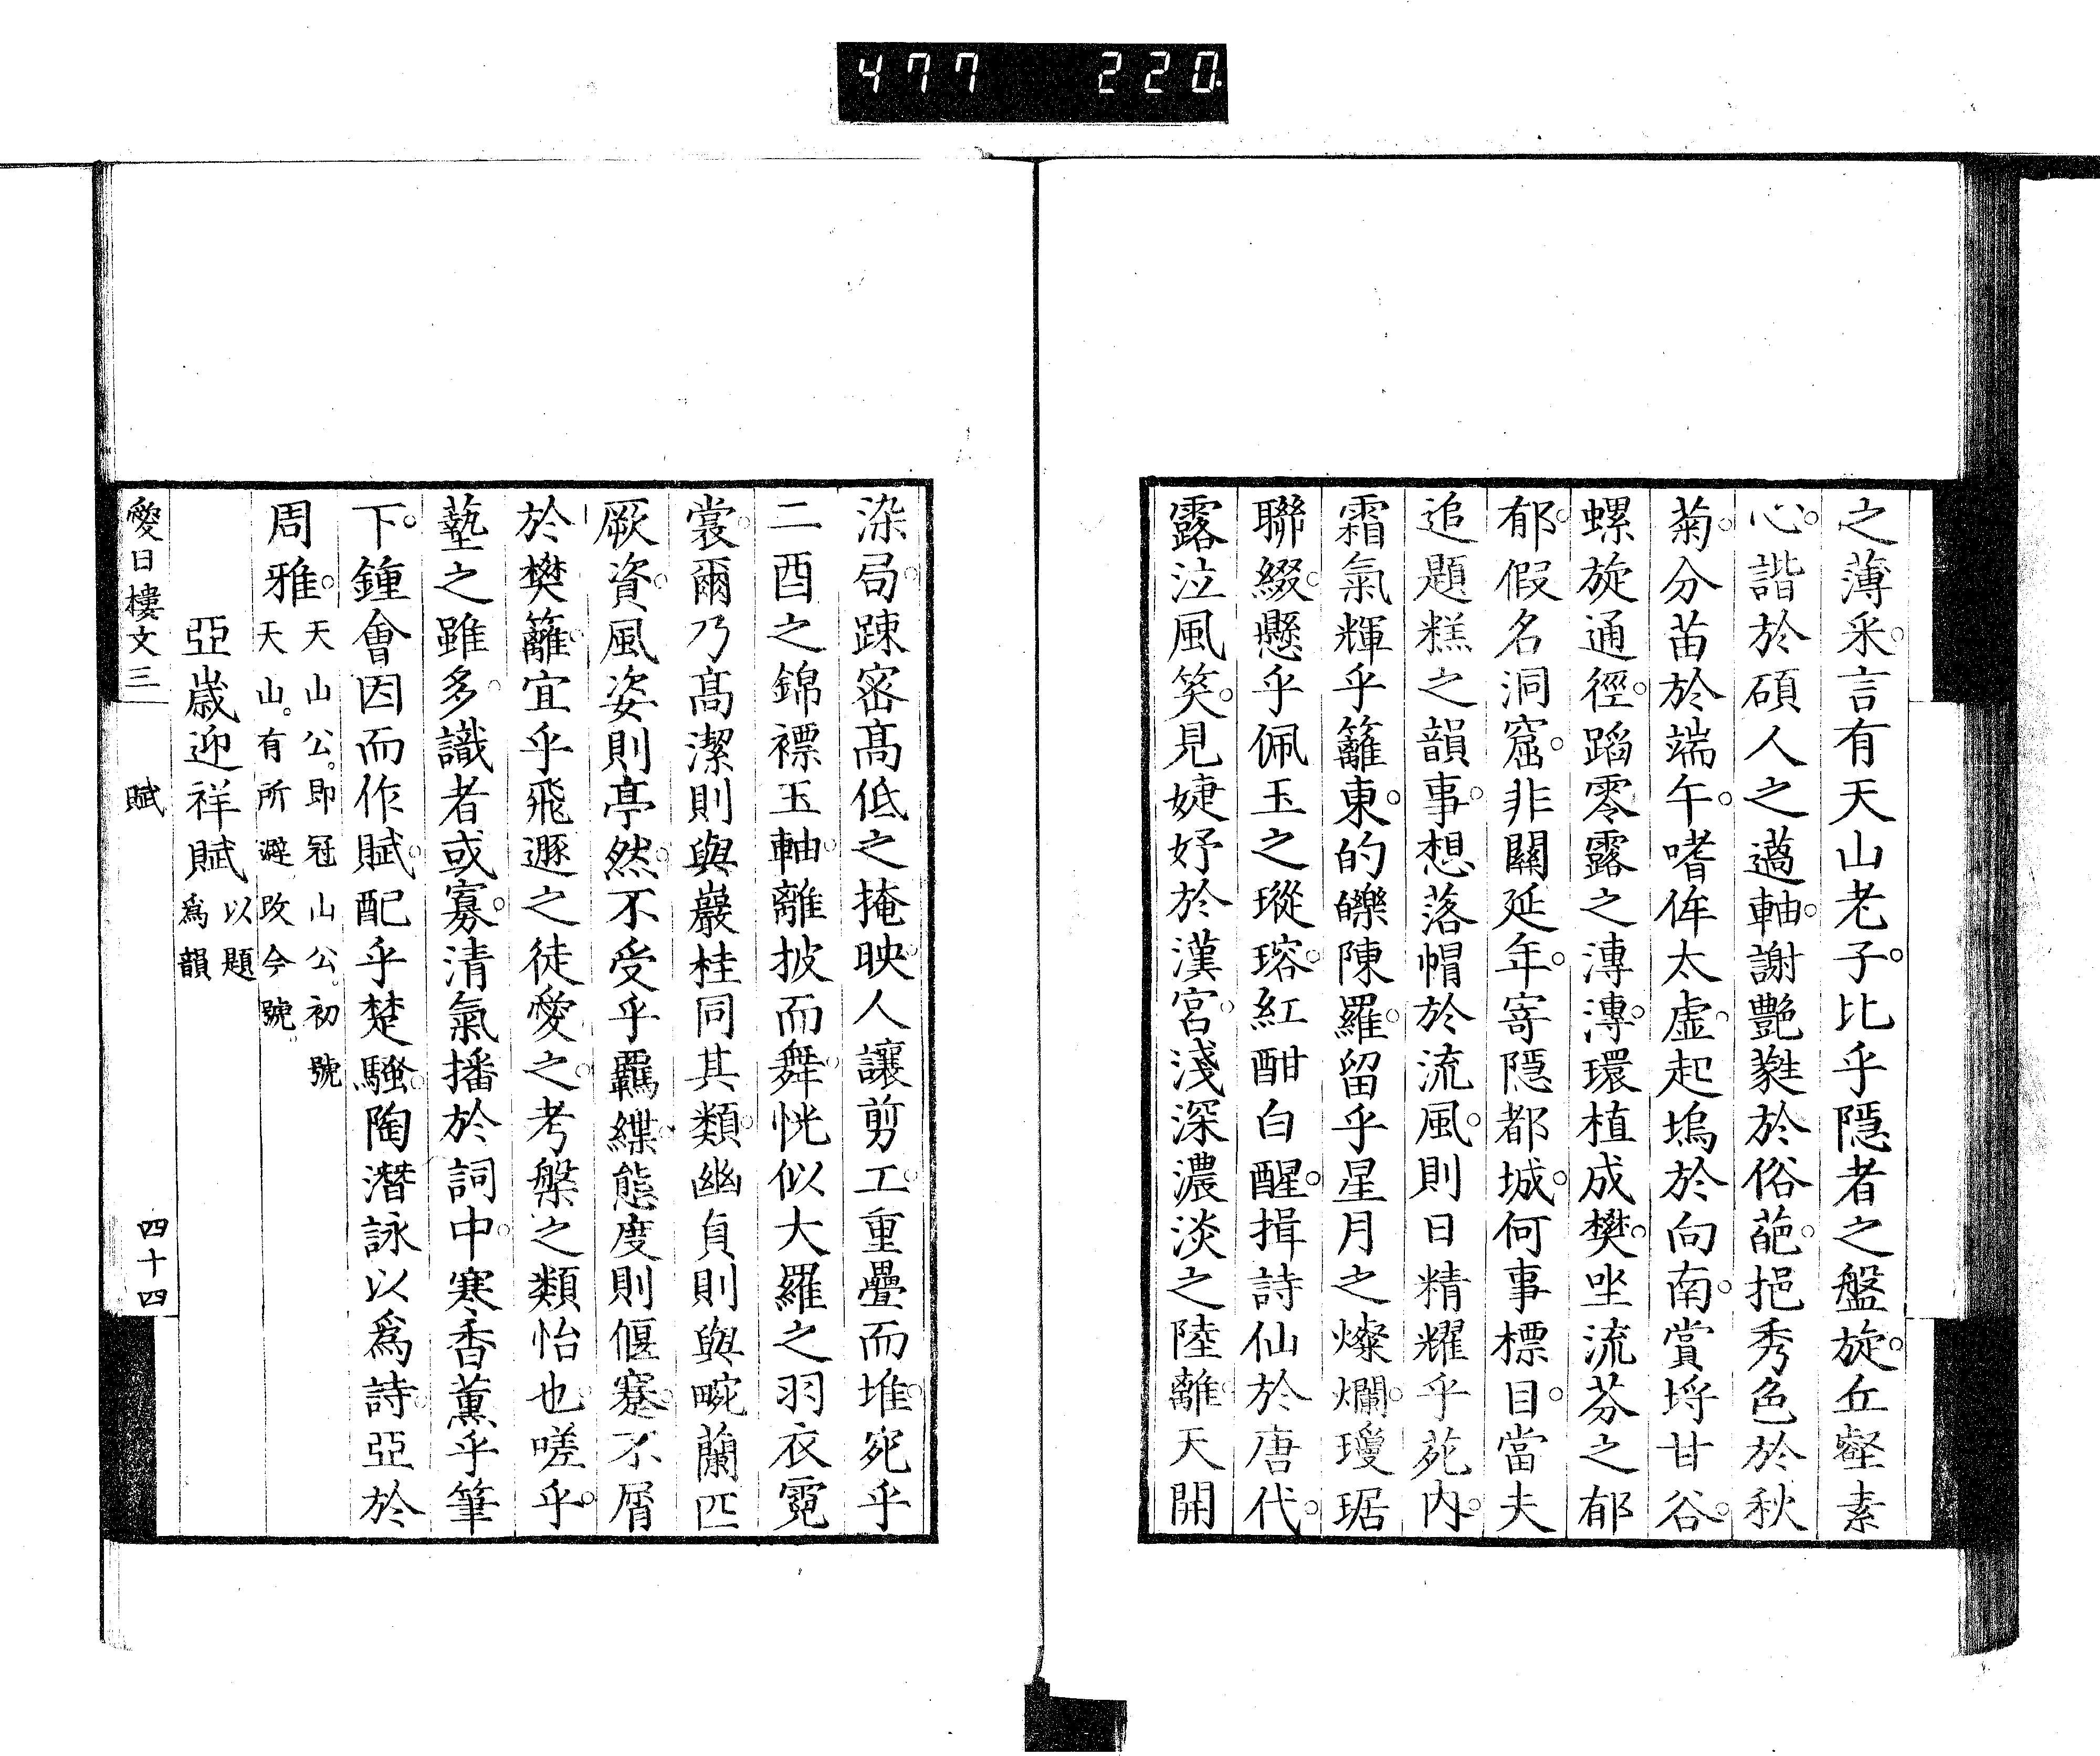 477 220.
之薄采。言有天山老子。比乎隱者之盤旋。丘壑素
心。諧於碩人之薖軸。謝艷蕤於俗葩。挹秀色於秋
菊。分苗於端午。嗜侔太虛。起塢於向南。賞埒甘谷。
螺旋通徑。蹈零露之漙漙。環植成樊。坐流芬之郁
郁。假名洞窟。非關延年。寄隱都城。何事標目。當夫
追題糕之韻事。想落帽於流風。則日精耀乎苑内。
霜氣輝乎籬東。的皪陳羅。留乎星月之燦爛。瓊琚
聯綴。懸乎佩玉之瑽瑢。紅酣白醒。揖詩仙於唐代。
露泣風笑。見婕妤於漢宮。淺深濃淡之陸離。天開
染局。踈密髙低之掩映。人讓剪工。重疊而堆。宛乎
二酉之錦褾玉軸。離披而舞。恍似大羅之羽衣霓
裳。爾乃髙潔則與巖桂同其類。幽貞則與畹蘭匹
厥資。風姿則亭然。不受乎羈緤。態度則偃蹇。不屑
於樊籬。宜乎飛遯之徒愛之。考槃之類怡也。嗟乎。
藝之雖多。識者或寡。清氣播於詞中。寒香薫乎筆
下。鍾會因而作賦。配乎楚騷。陶潛詠以爲詩。亞於
周雅。天山公。即冠山公。初號
天山。有所避改今號。
亞歲迎祥賦以題
爲韻
愛日樓文三 賦 四十四